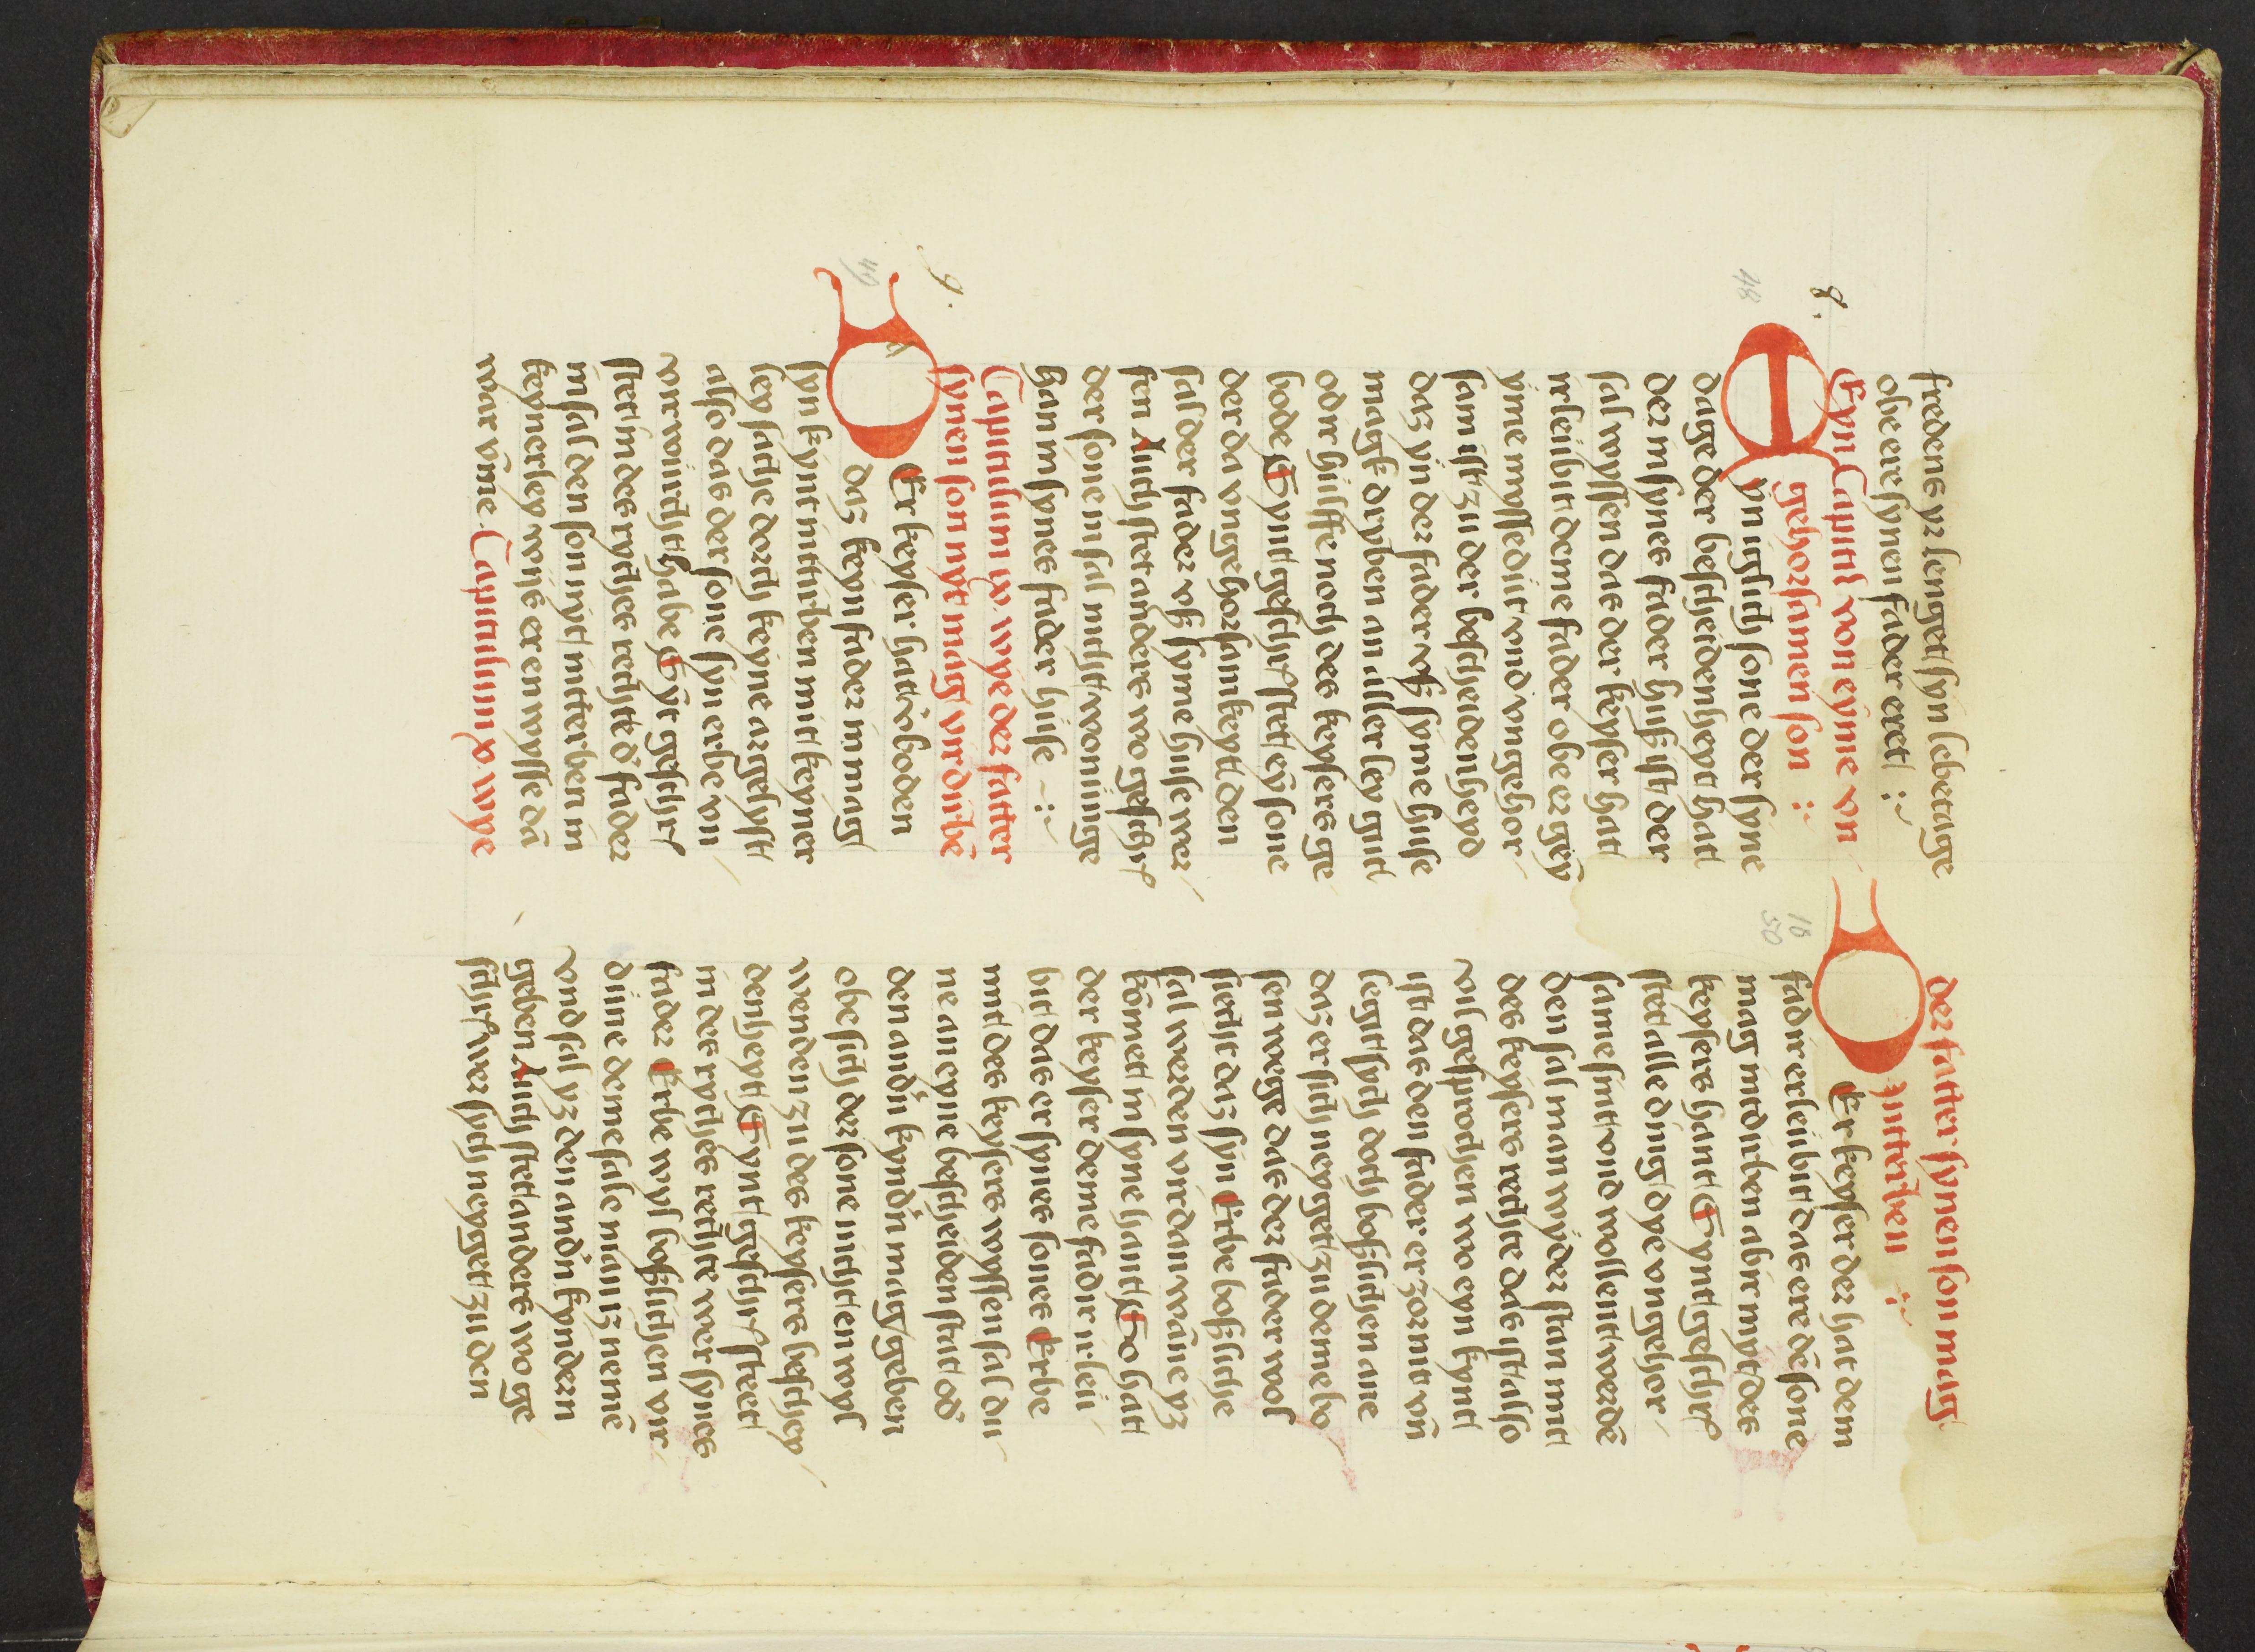 fredens yr lenget syn lebetage
obe ere synen fader eret :~
8.
Eyn Capittl von eyme vn
gehorsamen son :~
48
Eyn iglich sone der syne
dage der bescheidenheyt hait
der in synes fader huß ist der
sal wyssen das der keyser hait
irleubit deme fader obe er gey
yme myssedut vnd vngehor
sam ist zu der bescheidenheyd
daz yn der fader vß syme huse
magk dryben an aller ley gutt
odir hulffe noch des keysers ge
bode Synt geschr stett ey sone
der da vngehorsamkeyt den
sal der fader vß syme huse wer
fen Auch stet anders wo geschr
der sone in sal nicht wonunge
han in synes fader huse ~:~
Capitulum ix wye der fatter
9.
synen son nyt mag virdirbē
49
Der keyser hait vboden
daz keyn fader in mag
syn kynt intirben mitt keyner
ley sache dorch keyne argelyst
also das der sone syn erbe vn
vorwircht habe Syt geschr
stet in des ryches rechte d fader
in sal den son nyt intterben in
keynerley wijs er en wysse dā
war vme Capitulum x wye
der fatter synen son mag
intterben :~
Der keyser der hat dem
10
50
fadir erleubit das er dē sone
mag intdirben abir myt des
keysers hant Synt geschr
stett alle ding dye vngehor
same sint vnd wollent werdē
den sal man wyder stan mit
des keysers rechte das ist also
vil gesprochen wo eyn kynt
ist das den fader erzornit vn
legit sych doch boßlichen ane
daz er sich neygett zu deme bo
sen wege das der fader wol
siecht daz syn Erbe boßliche
sal werden virdan wāne yz
kōmett in syne hant So hatt
der keyser deme fadir irleu
bit das er synes sones Erbe
mit des keysers wyssen sal du
ne an eyne bescheiden stat od
den andn kyndn mag geben
obe sich der sone nicht en wyl
wenden zu des keysers beschey
denheyt Synt geschr steet
in des ryches rechte wer synes
fader Erbe wyl boßlichen vir
dune deme sale man iz nemē
vnd sal yz den andn kyndern
geben Auch stett anders wo ge
schr wer sych neyget zu den